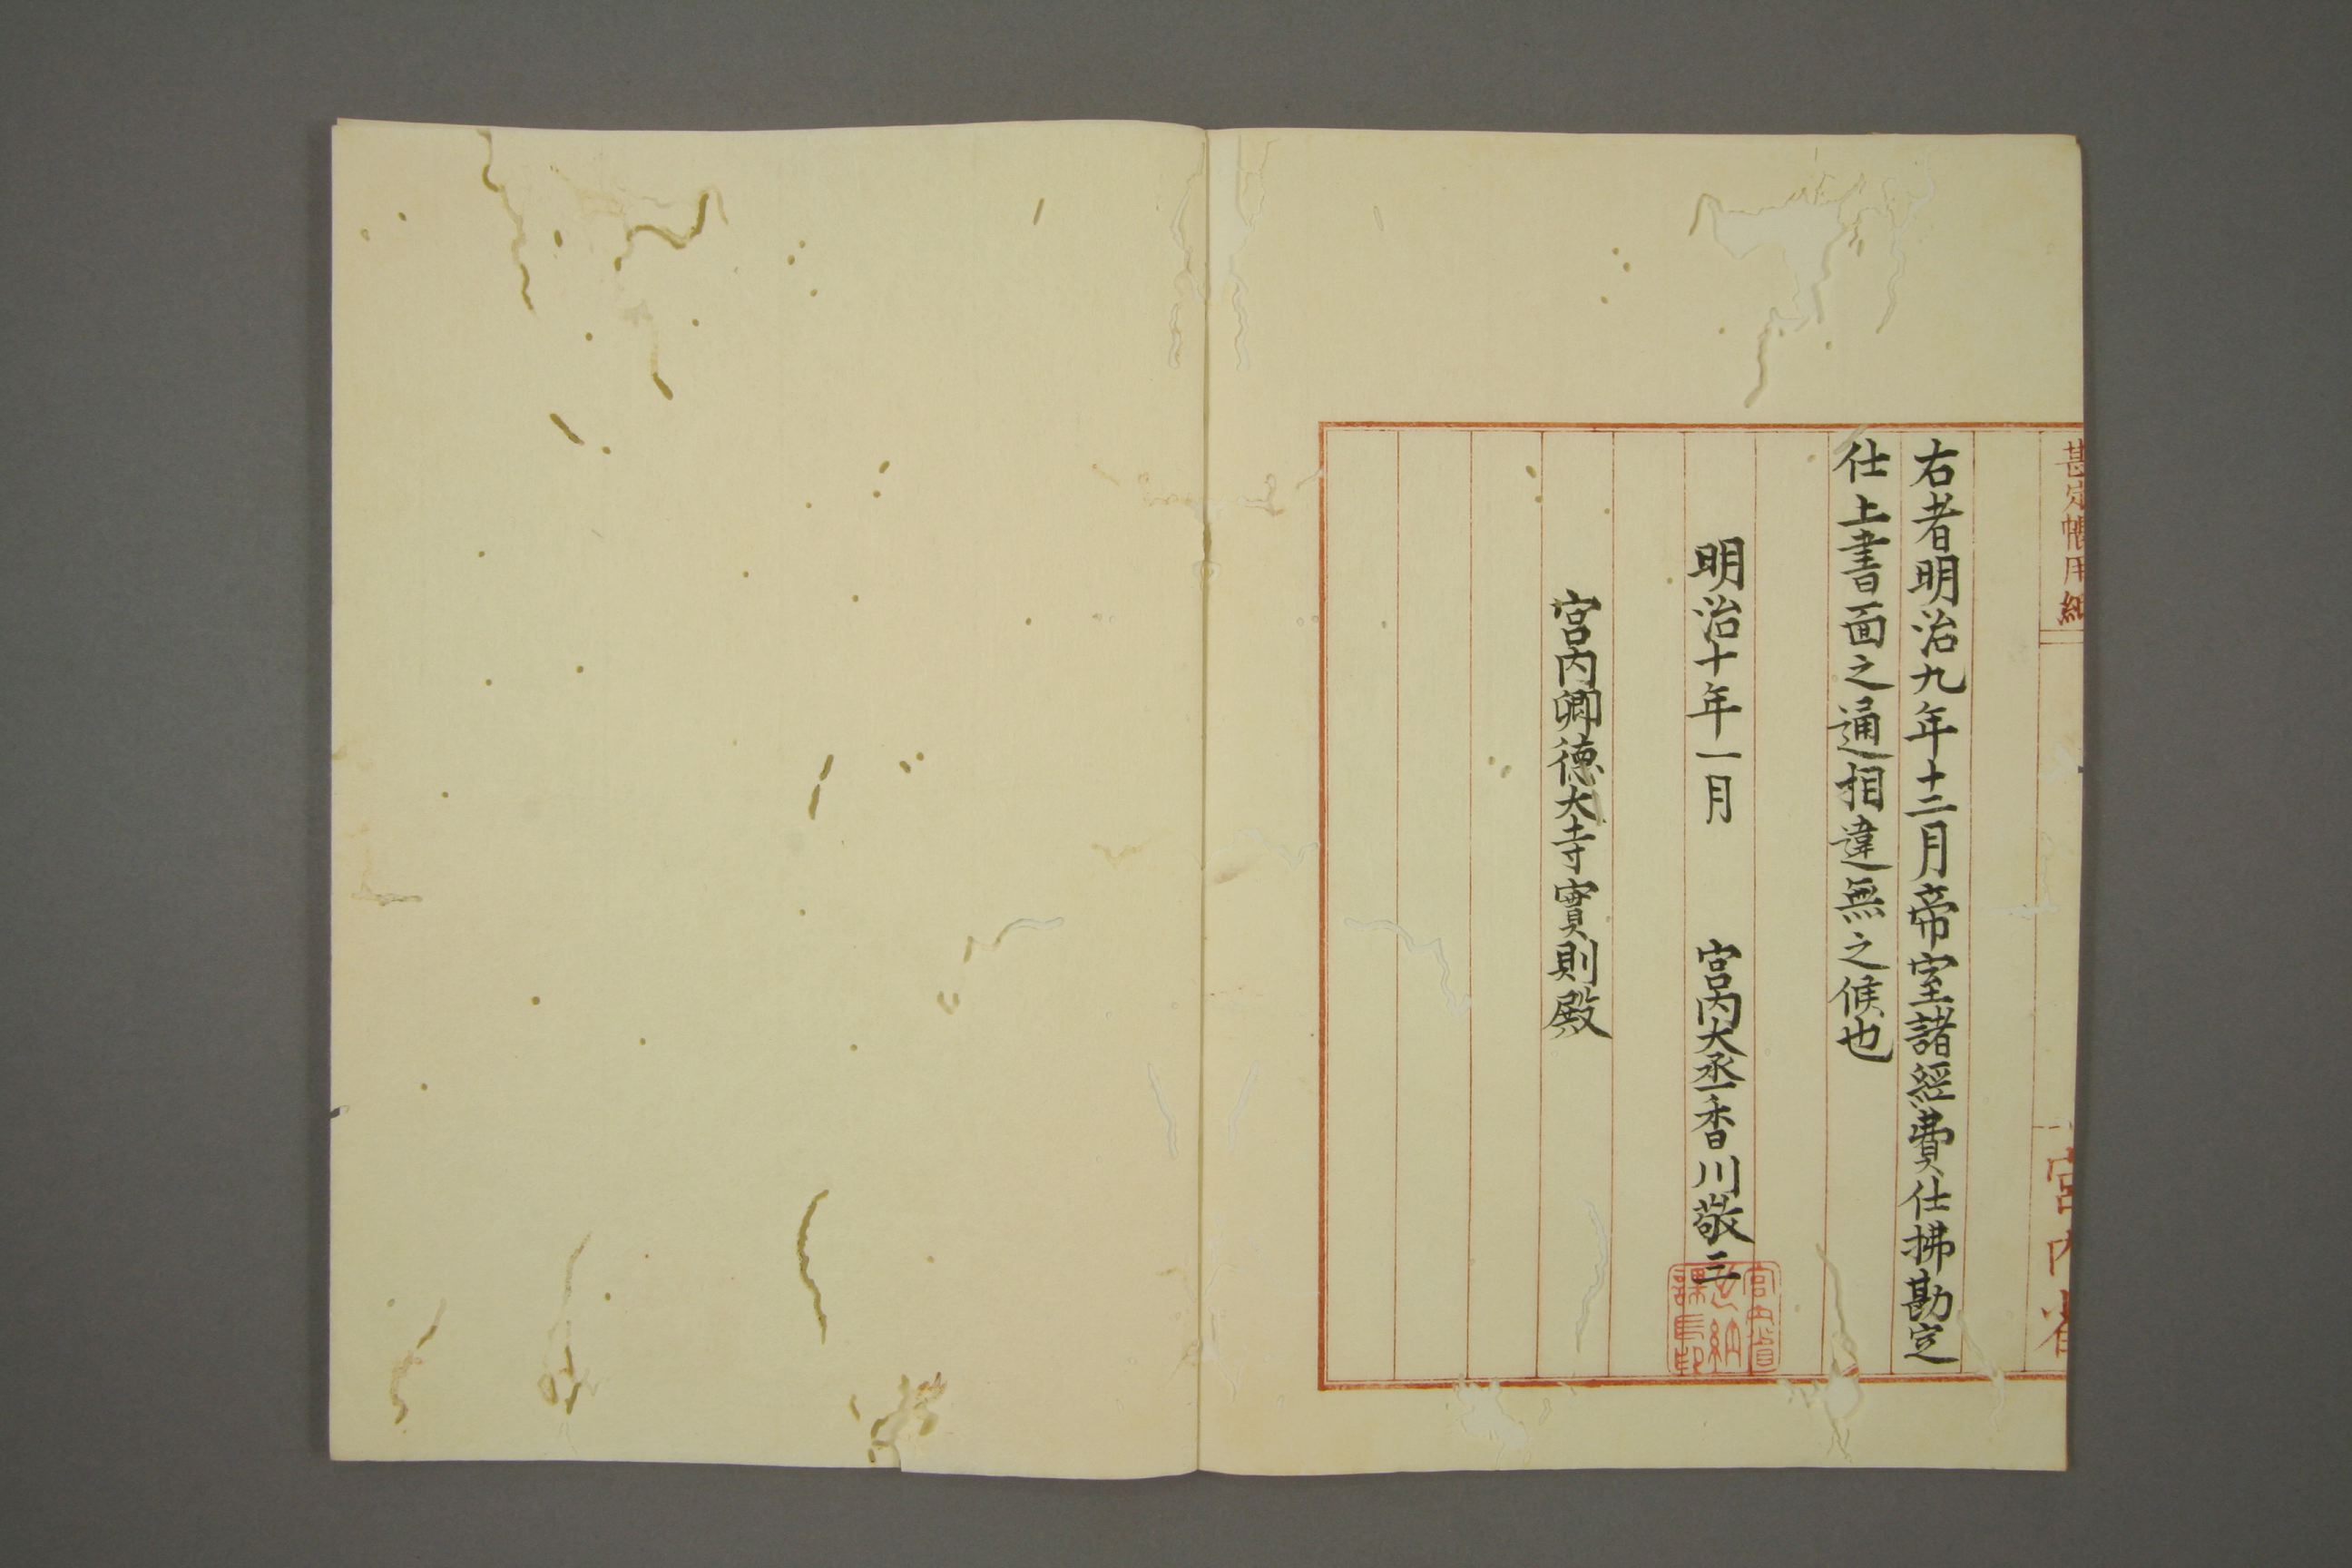 勘定帳用紙
宮内省
右者明治九年十二月帝室諸經費仕拂勘定
仕上書面之通相違無之候也
明治十年一月　宮内大丞香川敬三
宮内省
出納
課長印
宮内卿徳大寺實則殿